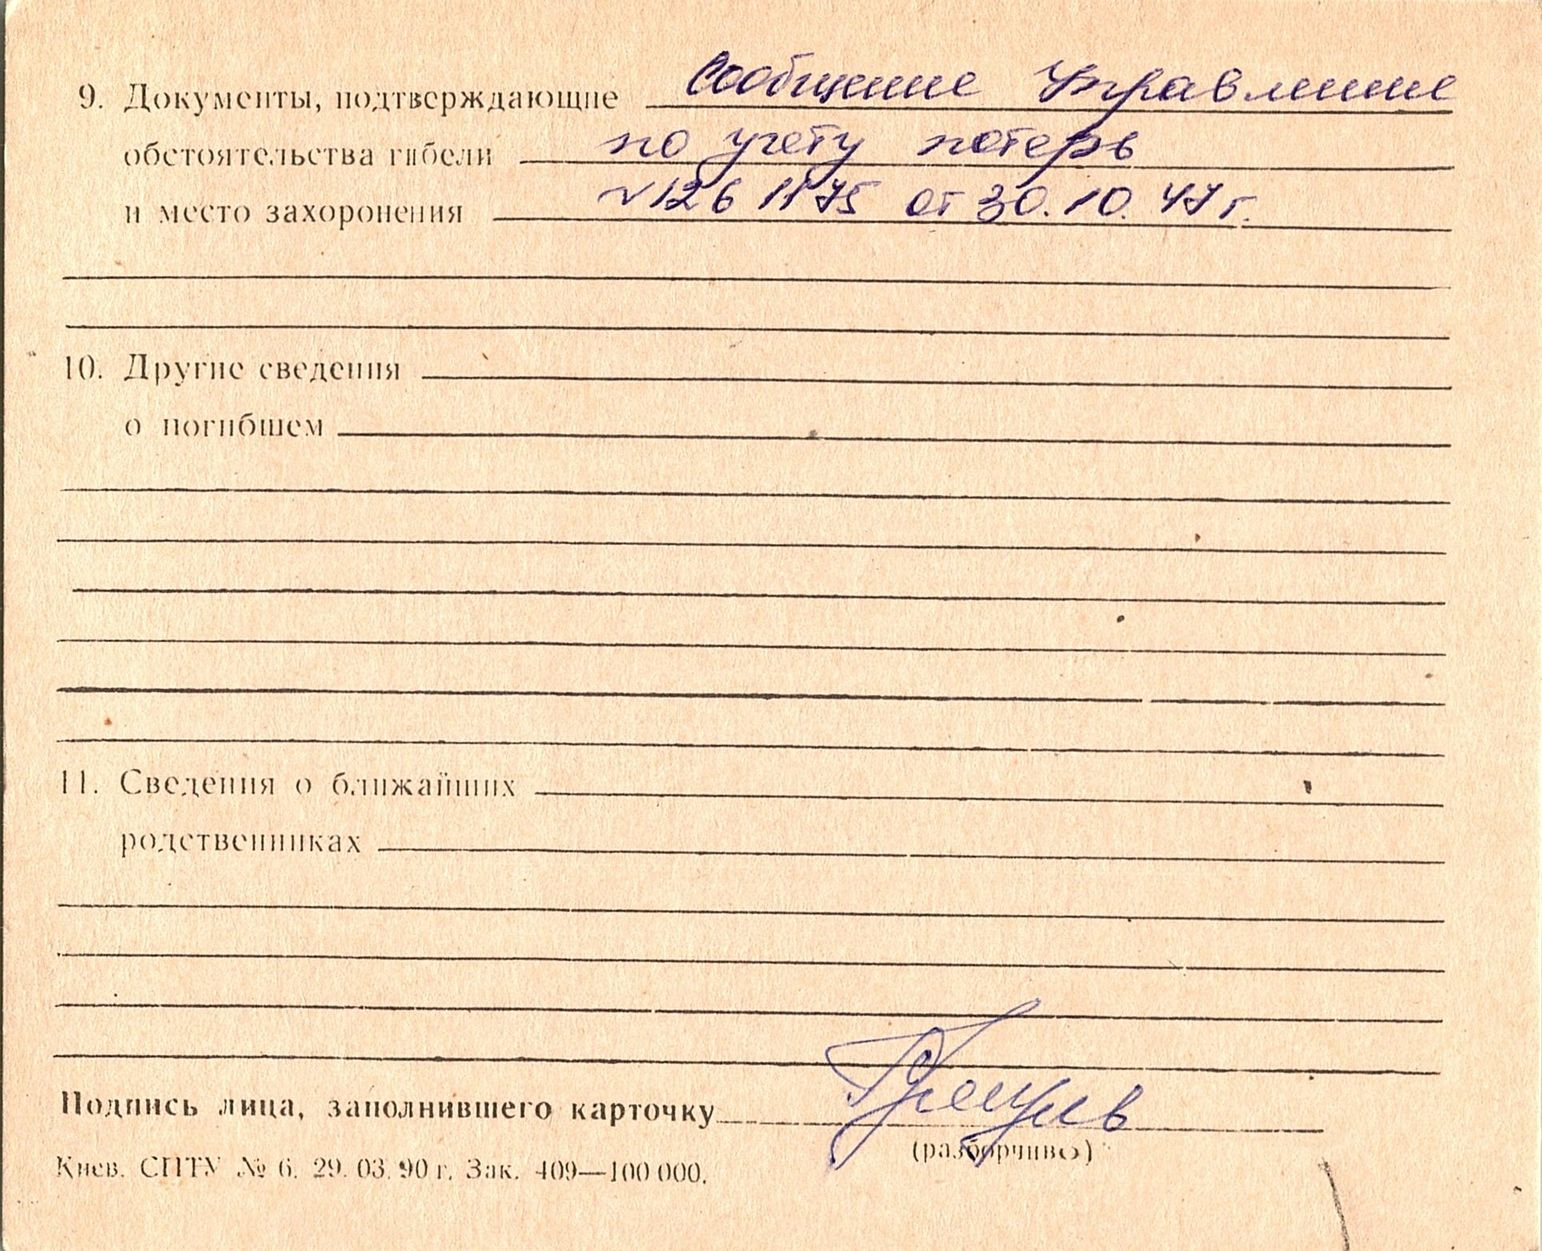 9. Документы, подтверждающие Сообщение Управление
обстоятельства гибели по учету потерь
и место захоронения № 126 1175 от 30.10.47 г.
10. Другие сведения
о погибшем
11. Сведения о ближайших
родственниках
Подпись лица, заполнившего карточку
(разборчиво)
Киев. СПТУ № 6. 29. 03. 90 г. Зак. 409—100 000.